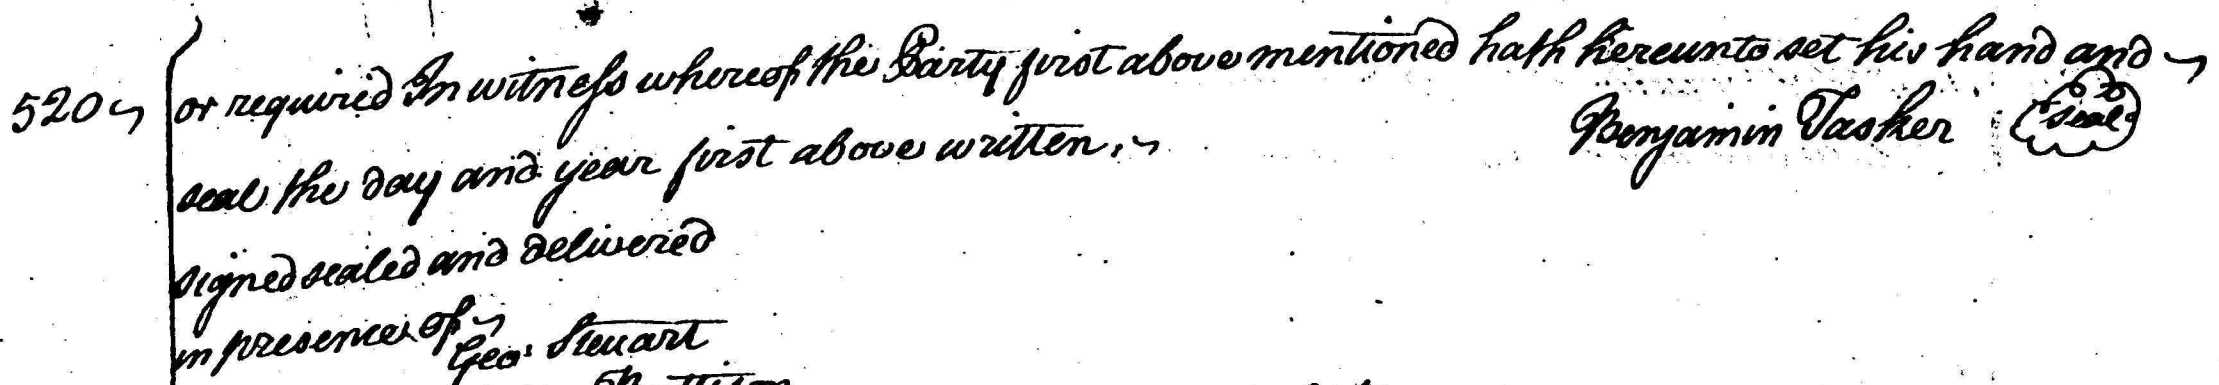 520 or required In witness whereof the Party first above mentioned hath hereunto set his hand and
seal the day and year first above written. Benjamin Tasker seal
signed sealed and delivered
in presence of
Geo: Steuart